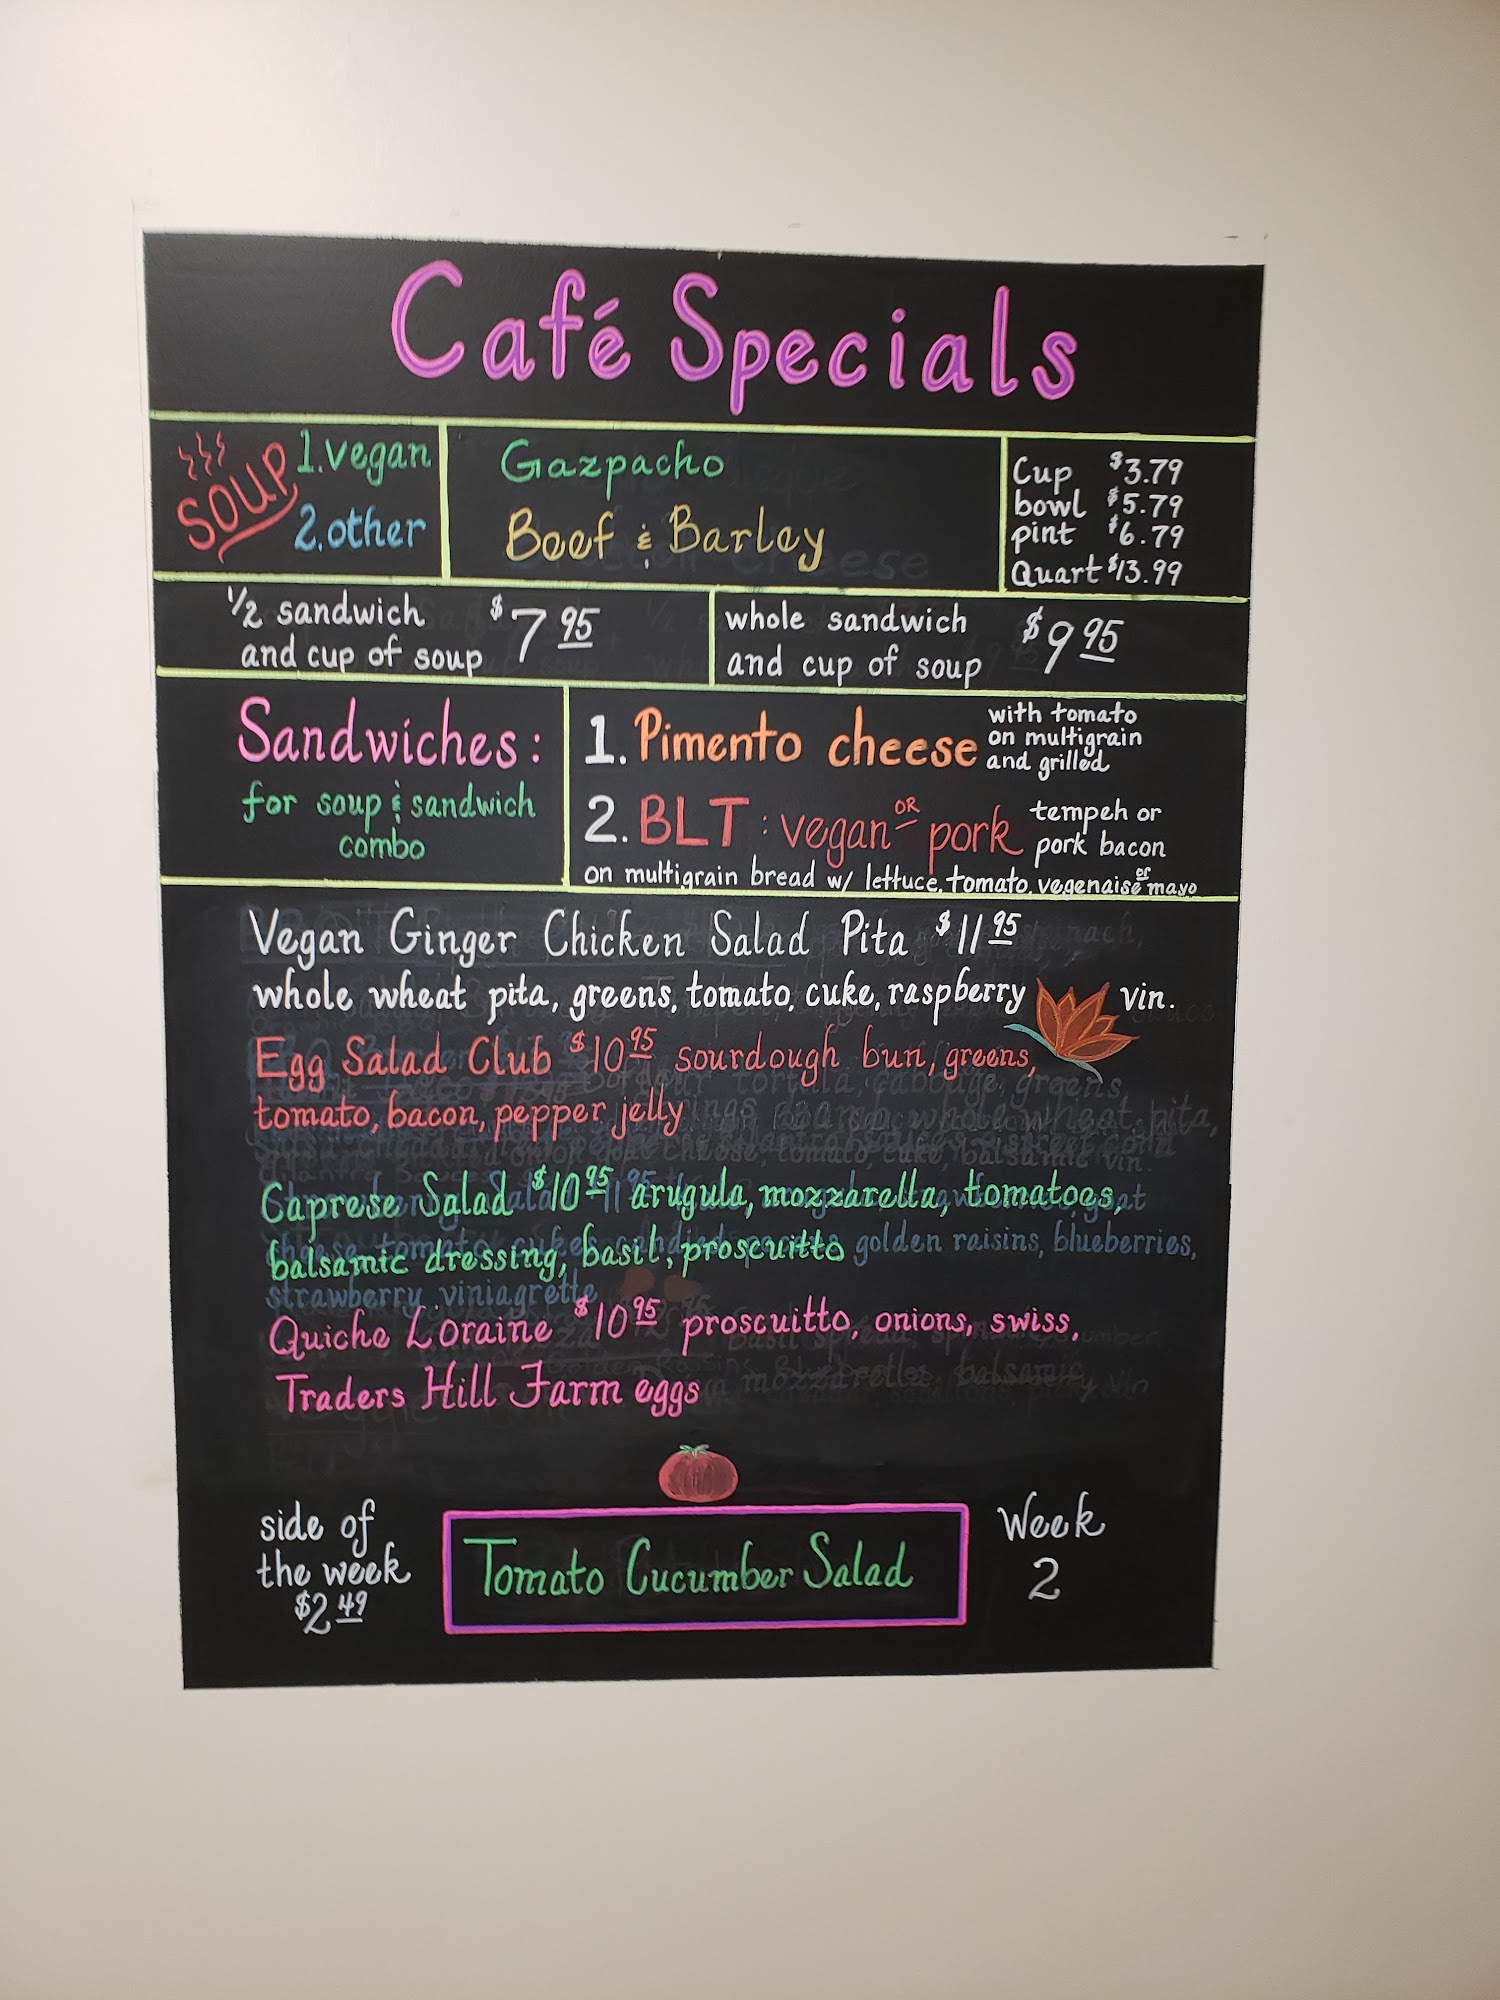 Café Specials
SOUP
1. vegan
2. other
Gazpacho
Beef & Barley
Cup $3.79
bowl $5.79
pint $6.79
Quart $13.99
1/2 sandwich
and cup of soup
$7 95
whole sandwich
and cup of soup
$9 95
Sandwiches:
for soup & sandwich
combo
1. Pimento cheese
with tomato
on multigrain
and grilled
2. BLT: vegan OR pork
tempeh or
pork bacon
on multigrain bread w/ lettuce, tomato, vegenaise or mayo
Vegan Ginger Chicken Salad Pita $11 95
whole wheat pita, greens, tomato, cuke, raspberry vin.
Egg Salad Club $10 95 sourdough bun, greens,
tomato, bacon, pepper jelly
Caprese Salad $10 95 arugula, mozzarella, tomatoes,
balsamic dressing, basil, proscuitto
golden raisins, blueberries,
strawberry viniagrette
Quiche Loraine $10 95 proscuitto, onions, swiss,
Traders Hill Farm eggs
side of
the week
$2 49
Tomato Cucumber Salad
Week
2